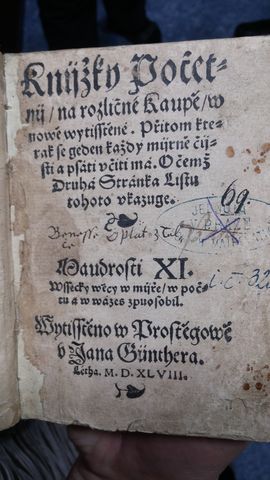 Knijžky Počet-
nij/na rozličné Kaupě/w
nowě wytisstěné. Přitom kte-
rak se geden každý mijrně čij-
sti a psáti včiti má. O čemž
Druhá Stránka Listu
tohoto vkazuge.
69.
Maudrosti XI.
Wssecky wěcy w mijře/ w poč-
tu a w wáze spuosobil.
Wytisstěno w Prostěgowě
v Jana Günthera.
Létha. M. D. XLVIII.